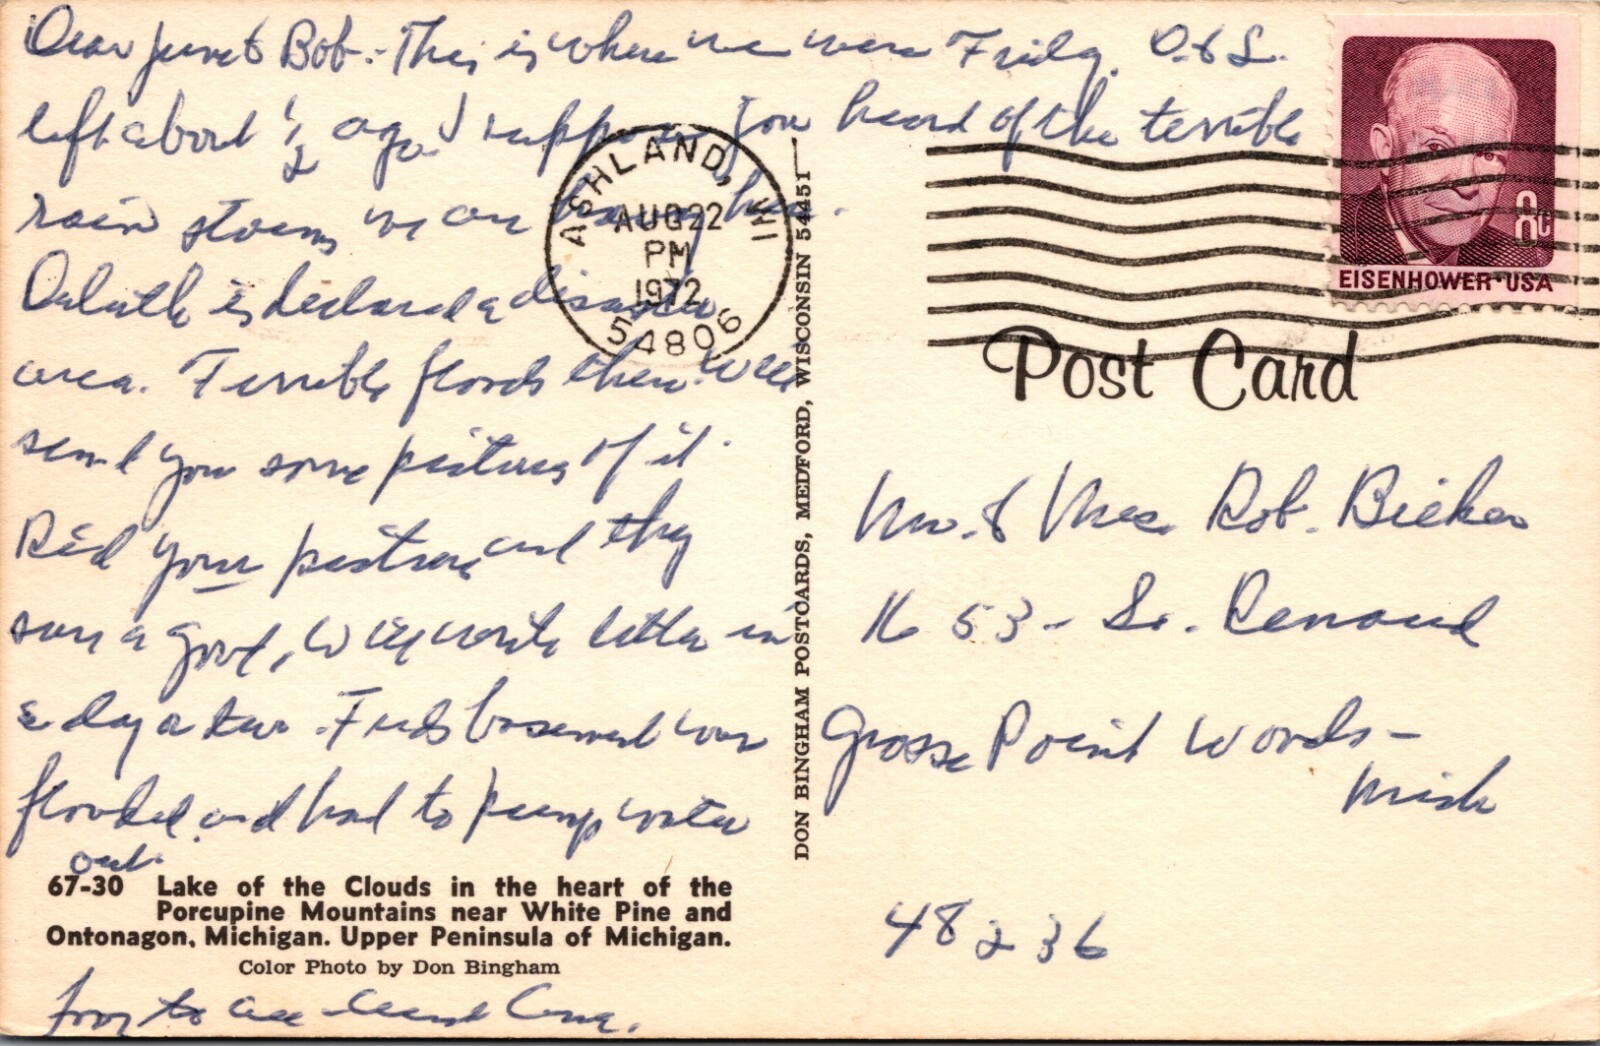 Dear Janet & Bob - This is where we were Friday. D. & L.
left about ½ ago. I suppose you heard of the terrible
rain storms we are having here.
Duluth is declared a disaster
area. Terrible floods there. Will
send you some pictures of it.
Rec'd your pictures and they
are good, will write letter in
a day or two. Fred's basement was
flooded and had to pump water
out.
67-30 Lake of the Clouds in the heart of the
Porcupine Mountains near White Pine and
Ontonagon, Michigan. Upper Peninsula of Michigan.
Color Photo by Don Bingham
to all
DON BINGHAM POSTCARDS, MEDFORD, WISCONSIN 54451
ASHLAND, WI
AUG 22
PM
1972
54806
8c
EISENHOWER·USA
Post Card
Mr. & Mrs. Rob.
53 - So. Renaud
Grosse Point Woods -
Mich
48236